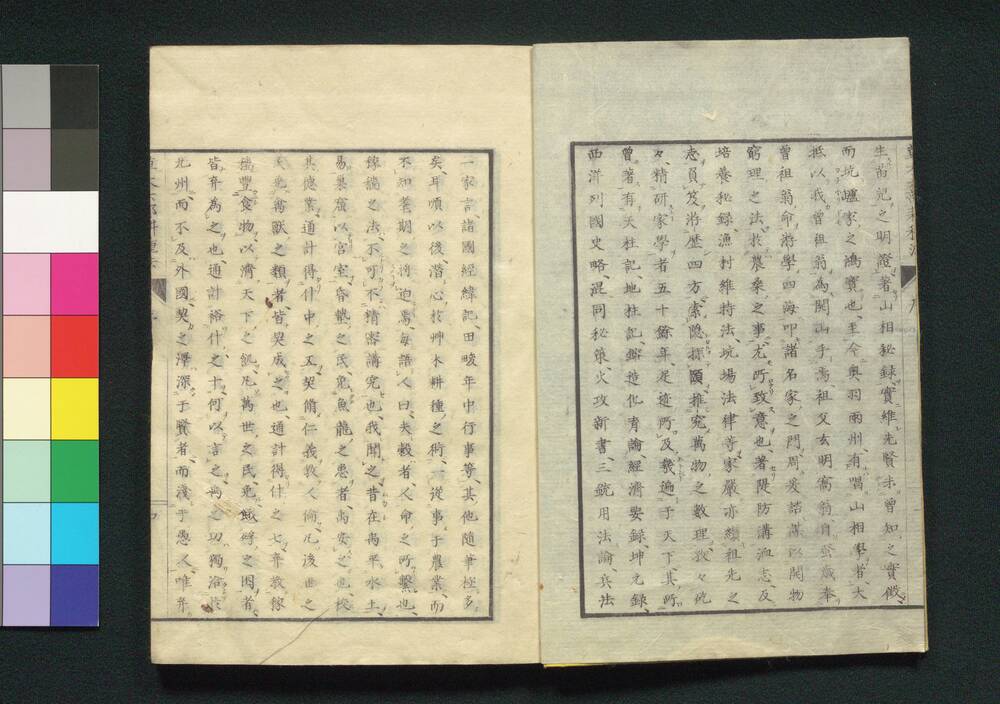 生苗記之明證、著山相秘錄、實維先賢未曾知之實徴、
而坑場家之鴻寶也、至今奧羽兩州有唱山相學者、大
抵以我曾祖翁為開山手焉、祖父玄明窩翁自蚤歲奉
曾祖翁命游學四海叩諸名家之門、周爰諮謀以開物
窮理之法、於農桑之事尤所致意也、著隄防溝洫志、及
培養秘錄漁村維持法坑場法律等、家嚴亦纘祖先之
志、負笈游歷四方索隱探頤、推究萬物之數理、孜々仡
々、精研家學者五十餘年、足迹所及幾遍于天下、其所
曾著有天柱記、地柱記、鎔造化育論、經濟要錄、坤元錄、
西洋列國史略、混同秘策、火攻新書、三銃用法論、兵法
一家言、諸國經緯記、田畯年中行事等、其他隨筆極多
矣、耳順以後、潛心於艸木耕種之術、一從事于農業、而
不知耄期之將迫焉、每語人曰、夫穀者、人命之所繫也、
稼穡之法、不可不精審講究也、我聞之、昔在禹平水土、
易巢窟以宮室、昏墊之民免魚龍之患者、禹安之也、
其德業、通計得什中之五、契脩仁義教人倫、凡後世之
免禽獸之類者、皆契成之也、通計得什之七、弃教稼
穡豐食物、以濟天下之飢、凡萬世之民、免餓莩之困者、
皆弃為之也、通計裕什之十、何以言之、禹之功獨洽於
九州、而不及外國、契之澤、深于賢者、而淺于愚人、唯弃